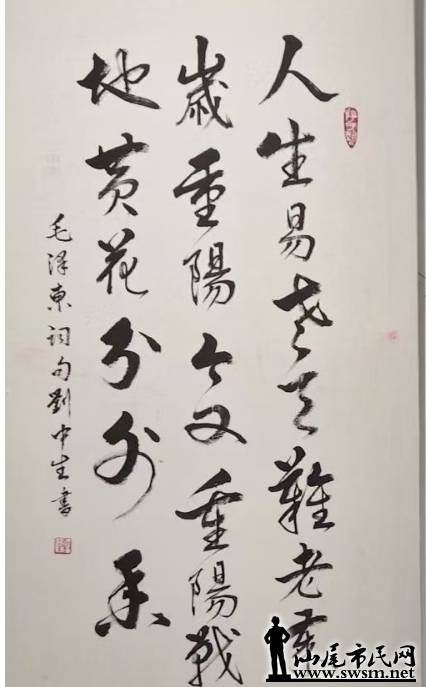 人生易老天難老歲
歲重陽今又重陽戰
地黃花分外香
毛泽東詞句劉中生書
汕尾市民网
www.swsm.net